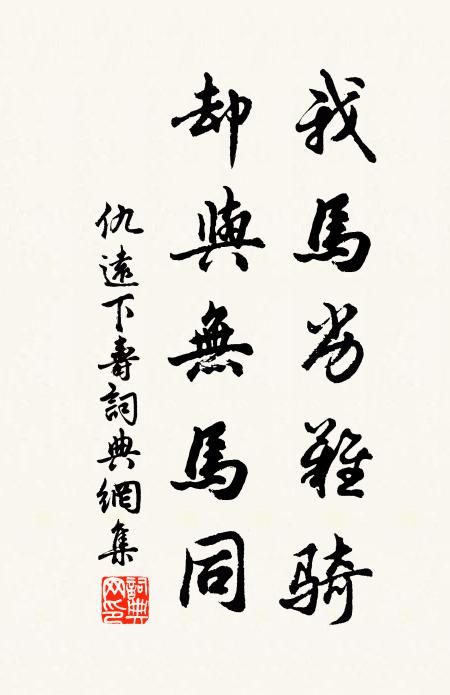 我馬劣難騎
却與無馬同
仇遠下壽詞典網集
詞典
网印